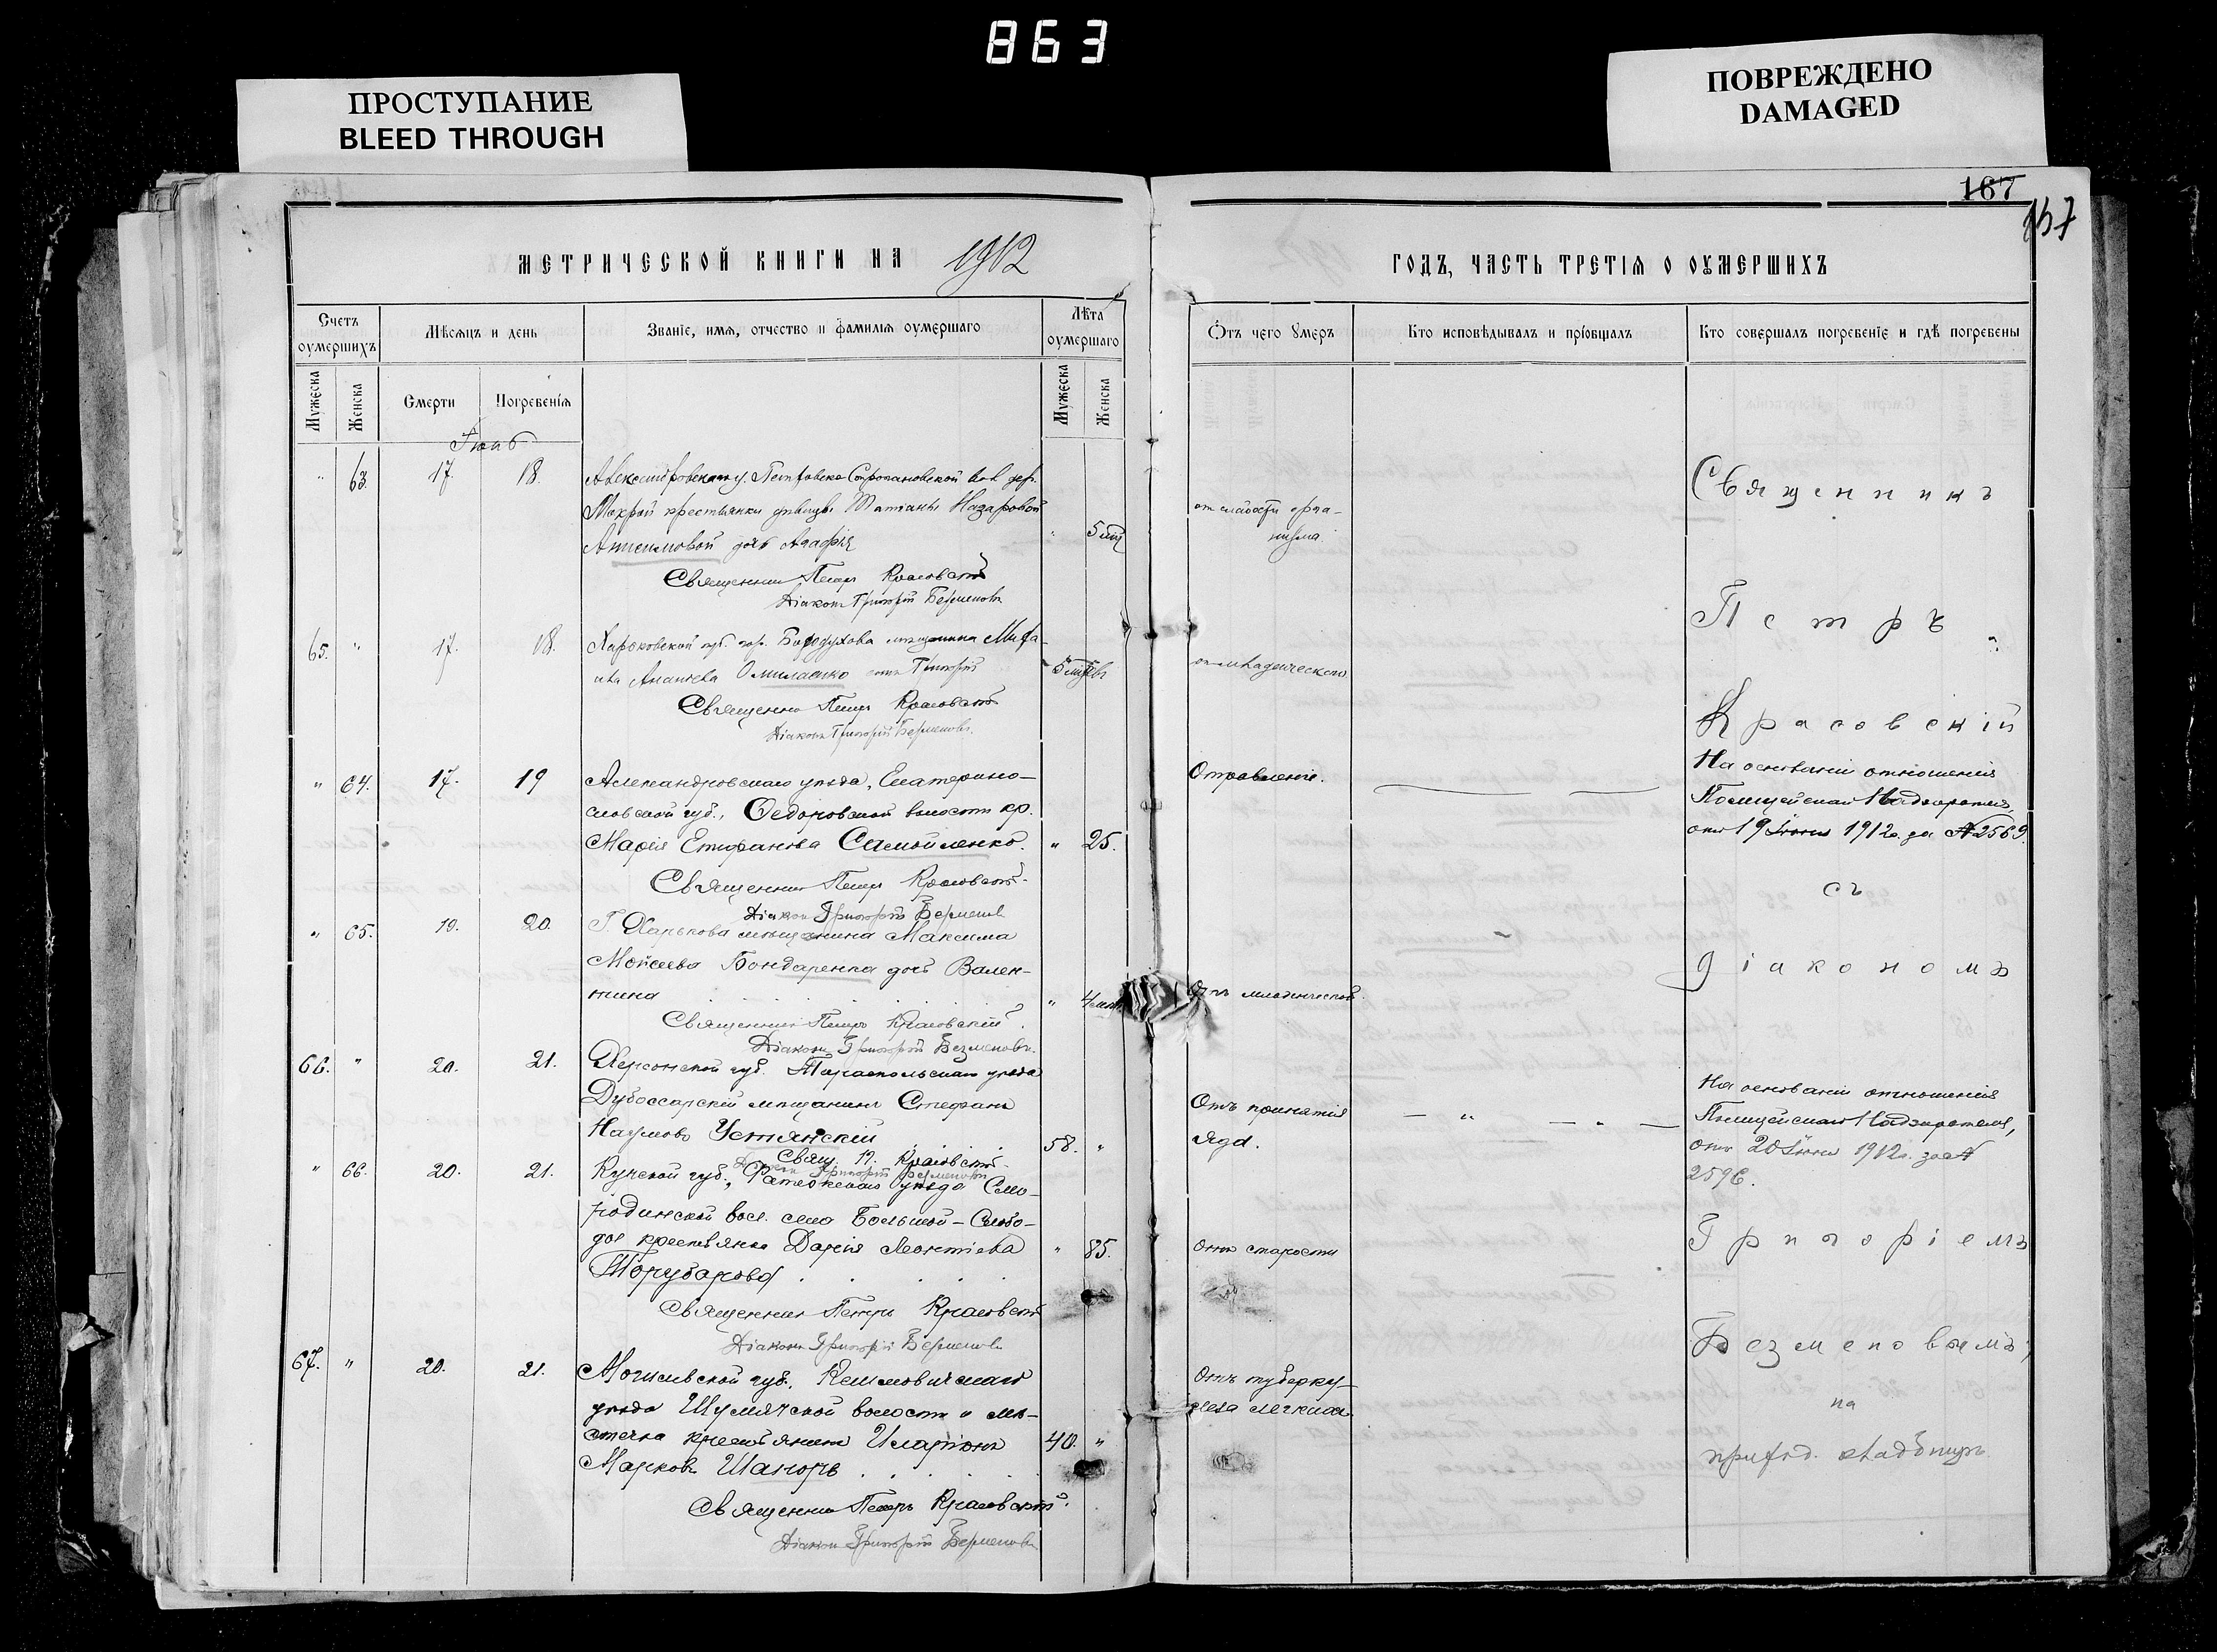 863
ПРОСТУПАНИЕ
BLEED THROUGH
ПОВРЕЖДЕНО
DAMAGED
167
157
МЕТРИЧЕСКОЙ КНИГИ НА 1912
ГОДЪ, ЧАСТЬ ТРЕТІЯ О ОУМЕРШИХЪ
Счетъ оумершихъ
Мѣсяцъ и день
Званіе, имя, отчество и фамилія оумершаго
Лѣта оумершаго
Отъ чего умеръ
Кто исповѣдывалъ и пріобщалъ
Кто совершалъ погребеніе и гдѣ погребены
Мужеска
Женска
Смерти
Погребенія
Мужеска
Женска
" 63. 17. 18. Александровскаго у. Петровско
Мокрой крестьянки дѣвицы Татіаны Назаровой
дочь Агафія " 5 мѣс
отъ слабости орга-
низма
Священникъ Петръ Красовскій
Діаконъ Григорій Безменовъ
65. " 17. 18. Харьковской губ. гор. Богодухова мѣщанина
Ананьева сынъ Григорій 5 мѣсяцевъ
отъ младенческаго
Священникъ Петръ Красовскій
Діаконъ Григорій Безменовъ.
" 64. 17. 19 Александровскаго уѣзда, Екатерино-
славской губ., Федоровской волости кр.
Марія Епифанова Самойленко. " 25.
Отравленіе.
Священникъ Петръ Красовскій.
Діаконъ Григорій Безменовъ
" 65. 19. 20. Г. Харькова мѣщанина Максима
Моисеева Бондаренка дочь Вален-
тина " 4 мѣс.
Отъ младенческой.
Священникъ Петръ Красовскій.
Діаконъ Григорій Безменовъ.
66. " 20. 21. Херсонской губ. Тираспольскаго уѣзда
Дубоссарскій мѣщанинъ Стефанъ
Наумовъ Устянскій 58. "
Отъ принятія
яда.
Свящ. П. Красовскій.
Діаконъ Григорій Безменовъ
" 66. 20. 21. Курской губ., Фатежскаго уѣзда Смо-
родинской вол. села Большой-Слобо-
ды крестьянка Дарія Леонтіева " 85.
Торубарова
отъ старости
Священникъ Петръ Красовскій
Діаконъ Григорій Безменовъ
67. " 20. 21. Могилевской губ., Климовичскаго
уѣзда Шумячской волости и мѣ-
стечка крестьянинъ Иларіонъ 40. "
Марковъ
Отъ туберку-
леза легкихъ.
Священникъ Петръ Красовскій.
Діаконъ Григорій Безменовъ
Священникъ
Петръ
Красовскій
На основаніи отношенія
Полицейскаго Надзирателя,
отъ 19 Іюня 1912 г. за № 2569.
съ
діакономъ
На основаніи отношенія
Полицейскаго Надзирателя,
отъ 20 Іюня 1912 г. за №
2596.
Григоріемъ
Безменовымъ,
на
приход. кладбищѣ.